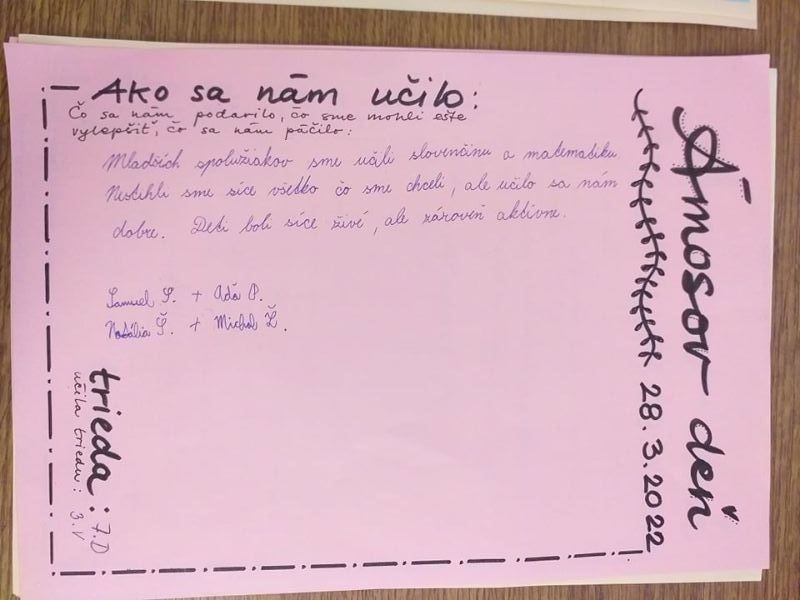 Ámosov deň
28.3.2022
Ako sa nám učilo:
Čo sa nám podarilo, čo sme mohli ešte
vylepšiť, čo sa nám páčilo:
Mladších spolužiakov sme učili slovenčinu a matematiku.
Nestihli sme síce všetko čo sme chceli, ale učilo sa nám
dobre. Deti boli síce živé, ale zároveň aktívne.
Samuel S. + Ada P.
Natália Š. + Michal Ž.
trieda: 7.D
učila triedu: 3.V